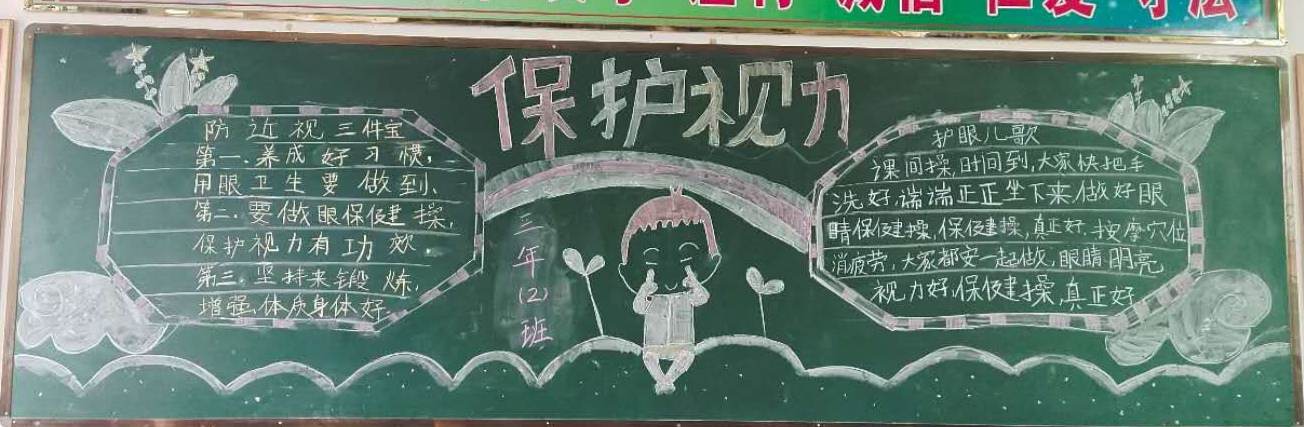 诚信 仁爱 守法
保护视力
防近视三件宝
第一.养成好习惯,
用眼卫生要做到、
第二.要做眼保健操,
保护视力有功效.
第三.坚持来锻炼,
增强体质身体好.
三年(2)班
护眼儿歌
课间操,时间到,大家快把手
洗好,端端正正坐下来,做好眼
睛保健操,保健操,真正好.按摩穴位
消疲劳,大家都安一起做,眼睛明亮
视力好,保健操,真正好.